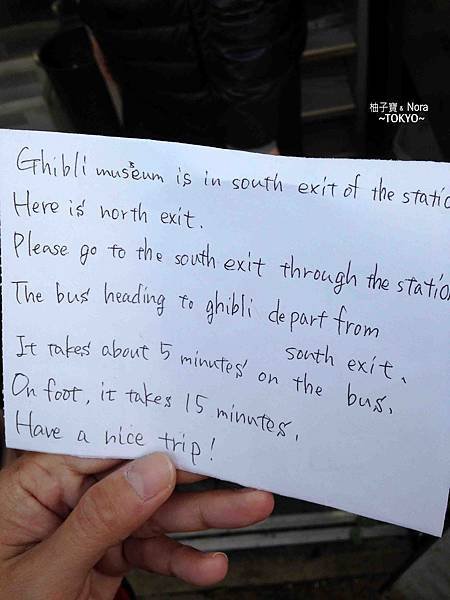 柚子寶 & Nora
~TOKYO~
Ghibli museum is in south exit of the static
Here is north exit.
Please go to the south exit through the station
The bus heading to ghibli depart from
south exit.
It takes about 5 minutes on the bus.
On foot, it takes 15 minutes.
Have a nice trip!